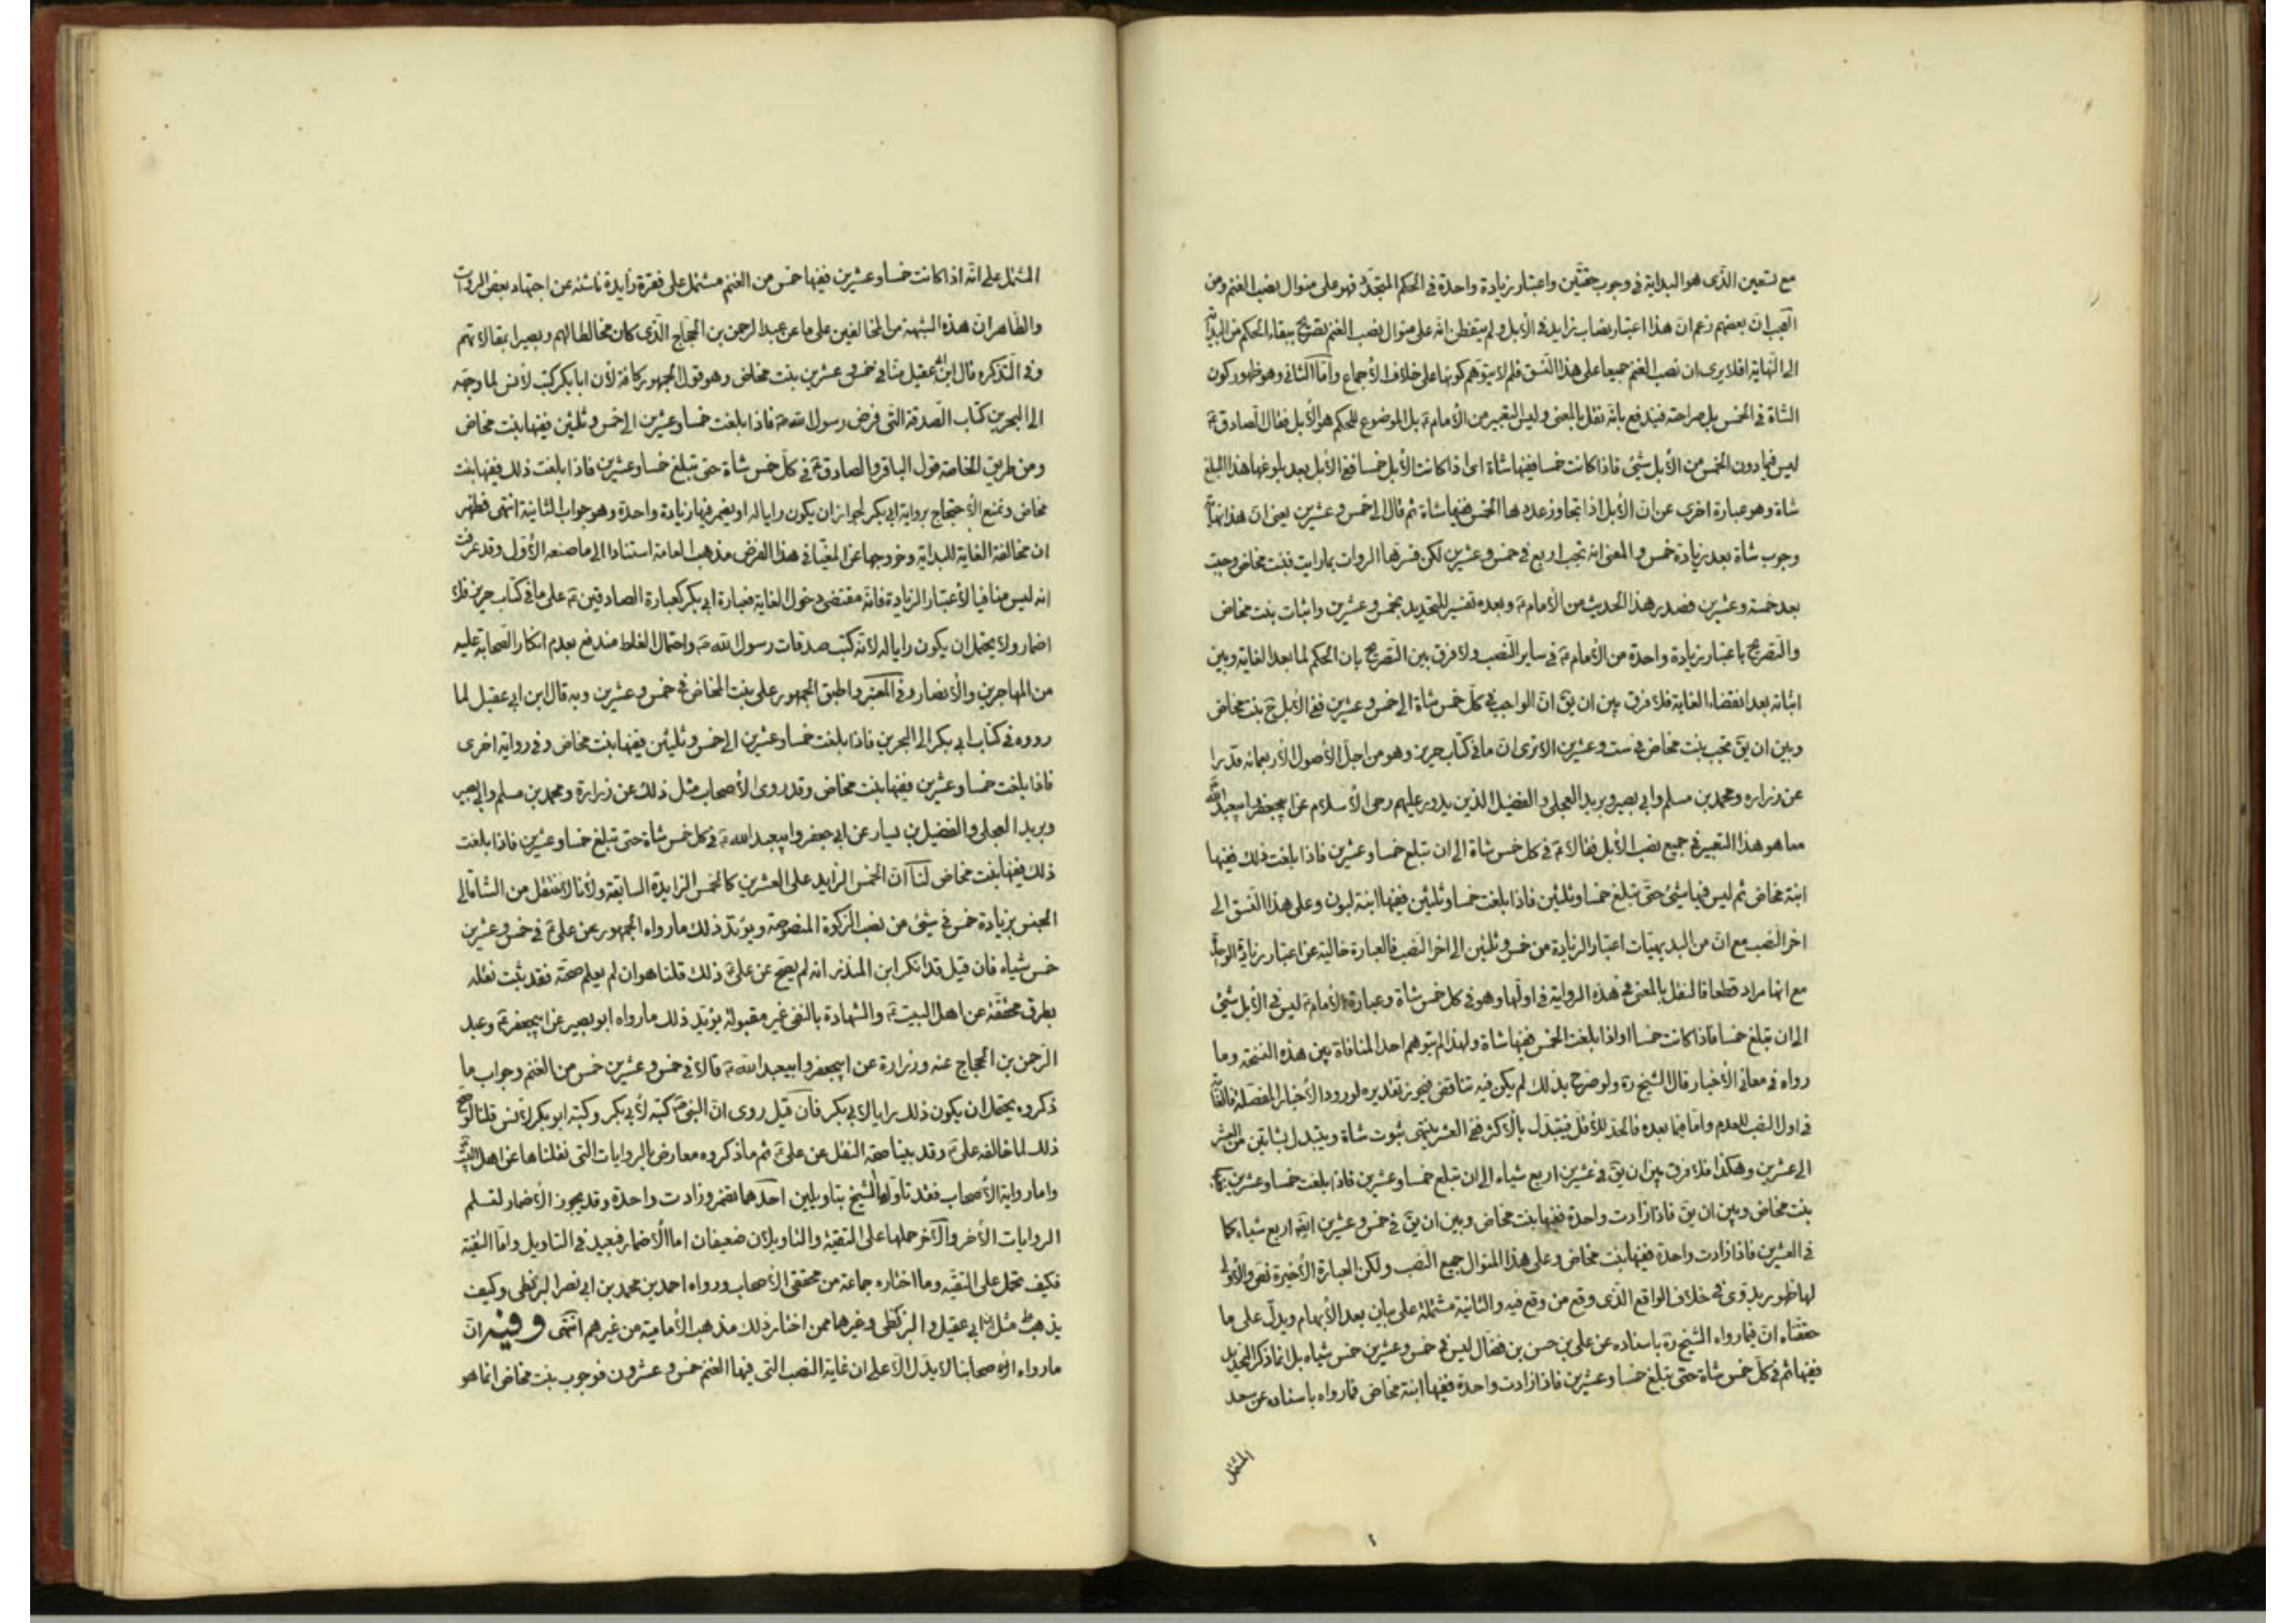 مع تعين الذى هو البداية فى وجوب حقتين واعتبار زيادة واحدة فى الحكم المتجدد فهو على منوال نصب الغنم ومن
العجب ان بعضهم زعم ان هذا اعتبار نصاب زايد فى الأبل ولم يتفطن انه على منوال نصب الغنم بصريح ببقاء الحكم من البداية
الى النهاية افلا يرى ان نصب الغنم جميعا على هذا النسق فلم لا يتوهم كونها على خلاف الأجماع وأما الثانى وهو ظهور كون
الشاة فى الخمس بل صراحته فيندفع بانه نقل بالمعنى وليس التعبير من الأمام ع بل الموضوع للحكم هو الأبل فقال الصادق ع
ليس فيما دون الخمس من الأبل شئ فاذا كانت خمسا ففيها شاة اى اذا كانت الأبل خمسا ففى الأبل بعد بلوغها هذا المبلغ
شاة وهو عبارة اخرى عن ان الأبل اذا تجاوز عددها الخمس ففيها شاة ثم قال الى خمس وعشرين يعنى ان هذا نهاية
وجوب شاة بعد زيادة خمس والمعنى انه تجب اربع فى خمس وعشرين لكن فسرها الروات بما رايت فبنت مخاض وجبت
بعد خمسة وعشرين فصدر هذا الحديث من الأمام ع وبعده تفسير للتحديد بخمس وعشرين واثبات بنت مخاض
والتصريح باعتبار زيادة واحدة من الأمام ع فى ساير النصب ولا فرق بين التصريح بان الحكم لما بعد الغاية وبين
اثباته بعد انقضاء الغاية فلا فرق بين ان يق ان الواجب فى كل خمس شاة الى خمس وعشرين ففى الأبل ح بنت مخاض
وبين ان يق تجب بنت مخاض فى ست وعشرين الا ترى ان ما فى كتاب حريز وهو من اجل الأصول الأربعمائه قد برا
عن زراره ومحمد بن مسلم وابى بصير وبريد العجلى والفضيل الذين يدور عليهم رحى الأسلام عن ابيجعفر وابيعبد الله
معا هو هذا التعبير فى جميع نصب الأبل فقالا ع فى كل خمس شاة الى ان تبلغ خمسا وعشرين فاذا بلغت ذلك ففيها
ابنة مخاض ثم ليس فيها شئ حتى تبلغ خمسا وثلثين فاذا بلغت خمسا وثلثين ففيها ابنة لبون وعلى هذا النسق الى
اخر النصب مع ان من البديهيات اعتبار الزيادة من خمس وثلثين الى اخر النصب فالعبارة خالية عن اعتبار زيادة الواحدة
مع انها مراد قطعا فالنقل بالمعنى فى هذه الرواية فى اولها وهو فى كل خمس شاة وعبارة الأمام ع ليس فى الأبل شئ
الى ان تبلغ خمسا فاذا كانت خمسا او اذا بلغت الخمس ففيها شاة ولهذا لم يتوهم احد المنافاة بين هذه النسخة وما
رواه فى معانى الأخبار قال الشيخ ره ولو صرح بذلك لم يكن فيه تناقض فيجوز تقديره لورود الأخبار المفصلة
فى اول النصب للعدم واما فيما بعده فالحد للأقل فيتبدل بالأكثر ففى العشر ينتهى ثبوت شاة ويتبدل بشاتين من العشر
الى عشرين وهكذا فلا فرق بين ان يق فى عشرين اربع شياه الى ان تبلغ خمسا وعشرين فاذا بلغت خمسا وعشرين
بنت مخاض وبين ان يق فاذا زادت واحدة ففيها بنت مخاض وبين ان يق فى خمس وعشرين ايضا اربع شياه كما
فى العشرين فاذا زادت واحدة ففيها بنت مخاض وعلى هذا المنوال جميع النصب ولكن العبارة الأخيرة نص والأولى
لها ظهور بدوى فى خلاف الواقع الذى وقع من وقع فيه والثانية مشتملة على بيان بعد الأبهام ويدل على ما
حققناه ان فيما رواه الشيخ ره باسناده عن على بن حسن بن فضال ليس فى خمس وعشرين خمس شياه بل انما ذكر التحديد
ففيها ثم فى كل خمس شاة حتى تبلغ خمسا وعشرين فاذا زادت واحدة ففيها ابنة مخاض فما رواه باسناده عن سعد
المشتمل
٢
المشتمل على انه اذا كانت خمسا وعشرين ففيها خمس من الغنم مشتمل على فقرة زايدة ناشئه عن اجتهاد بعض الروات
والظاهر ان هذه الشبهة من المخالفين على ما عن عبد الرحمن بن الحجاج الذى كان مخالطا لهم وبصيرا بمقالاتهم
وفى التذكره قال ابن ابى عقيل منا فى خمس وعشرين بنت مخاض وهو قول الجمهور كافة لأن ابا بكر كتب لأنس لما وجهه
الى البحرين كتاب الصدقة التى فرض رسول الله ص فاذا بلغت خمسا وعشرين الى خمس وثلثين ففيها بنت مخاض
ومن طريق الخاصة قول الباقر والصادق ع فى كل خمس شاة حتى تبلغ خمسا وعشرين فاذا بلغت ذلك ففيها بنت
مخاض ونمنع الأحتجاج برواية ابى بكر لجواز ان يكون رايا له او يضمر فيها زيادة واحدة وهو جواب الثانية انتهى فظهر
ان مخالفة الغاية للبداية وخروجها عن المغيا فى هذا الفرض مذهب العامة استنادا الى ما صنعه الأول وقد عرفت
انه ليس منافيا لأعتبار الزيادة فانه مقتضى دخول الغاية فعبارة ابى بكر كعبارة الصادقين ع على ما فى كتاب حريز فلا
اضمار ولا يحتمل ان يكون رايا له لأنه كتب صدقات رسول الله ص واحتمال الغلط مندفع بعدم انكار الصحابة عليه
من المهاجرين والأنصار وفى المعتبر واطبق الجمهور على بنت المخاض فى خمس وعشرين وبه قال ابن ابى عقيل لما
رووه فى كتاب ابى بكر الى البحرين فاذا بلغت خمسا وعشرين الى خمس وثلثين ففيها بنت مخاض وفى رواية اخرى
فاذا بلغت خمسا وعشرين ففيها بنت مخاض وقد روى الأصحاب مثل ذلك عن زرارة ومحمد بن مسلم وابى بصير
وبريد العجلى والفضيل بن يسار عن ابى جعفر وابيعبد الله ع فى كل خمس شاة حتى تبلغ خمسا وعشرين فاذا بلغت
ذلك ففيها بنت مخاض لنا ان الخمس الزايد على العشرين كالخمس الزايدة السابقة ولأنا لا ننتقل من الشاة الى
الجنس بزيادة خمس فى شئ من نصب الزكوة المنصوصة ويؤيد ذلك ما رواه الجمهور عن على ع فى خمس وعشرين
خمس شياه فان قيل قد انكر ابن المنذر انه لم يصح عن على ع ذلك قلنا هو ان لم يعلم صحته فقد ثبت نقله
بطرق محققة عن اهل البيت ع والشهادة بالنفى غير مقبولة يؤيد ذلك ما رواه ابو بصير عن ابيجعفر ع وعبد
الرحمن بن الحجاج عنه وزرارة عن ابيجعفر وابيعبد الله ع قالا فى خمس وعشرين خمس من الغنم وجواب ما
ذكروه يحتمل ان يكون ذلك رايا لأبى بكر فان قيل روى ان النبى ص كتبه لأبى بكر وكتبه ابو بكر لأنس قلنا لو صح
ذلك لما خالفه على ع وقد بينا صحة النقل عن على ع ثم ما ذكروه معارض بالروايات التى نقلناها عن اهل البيت
واما رواية الأصحاب فقد تاولها الشيخ بتاويلين احدهما تضمر وزادت واحدة وقد يجوز الأضمار لتسلم
الروايات الأخر والآخر حملها على التقية والتاويلان ضعيفان اما الأضمار فبعيد فى التاويل واما التقية
فكيف تحمل على التقيه وما اختاره جماعة من محققى الأصحاب ورواه احمد بن محمد بن ابى نصر البزنطى وكيف
يذهب مثل ابن ابى عقيل والبزنطى وغيرهما ممن اختار ذلك مذهب الأمامية من غيرهم انتهى وفيه ان
ما رواه الأصحابنا لا يدل الا على ان غاية النصب التى فيها الغنم خمس وعشرون فوجوب بنت مخاض انما هو